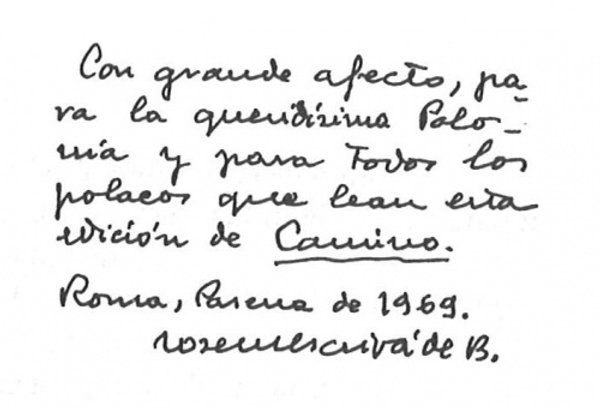 Con grande afecto, pa-
ra la queridísima Polo-
nia y para Todos los
polacos que lean esta
edición de Camino.
Roma, Pascua de 1969.
Josemescrivá de B.